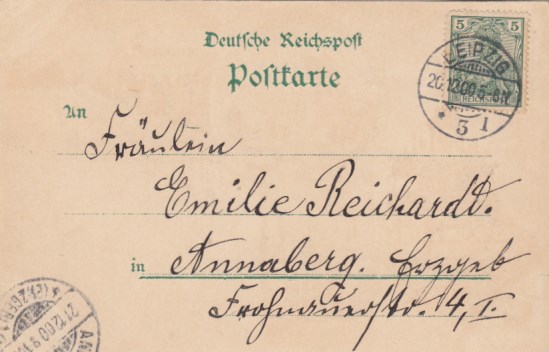 Deutsche Reichspost
Postkarte
5 5
REICHSPOST
LEIPZIG
20.12.00.5-6N
* 3 1
An
Fräulein
Emilie Reichardt.
in Annaberg. Erzgeb
Frohnauerstr. 4, I.
21.12.00.9